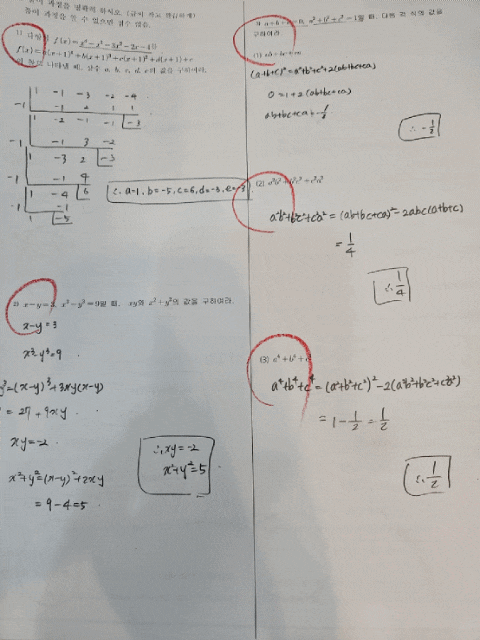 풀이 과정을 정확히 하시오.
1) 다음 f(x) = x⁴-x³-3x²-2x-4를
f(x)=a(x+1)⁴+b(x+1)³+c(x+1)²+d(x+1)+e
나타낼 때, 상수 a, b, c, d, e의 값을 구하여라.
-1 1 -1 -3 -2 -4
-1 2 1 1
1 -2 -1 -1 -3
-1 -1 3 -2
1 -3 2 -3
-1 -1 4
1 -4 6
-1 -1
1 -5
∴ a=1, b=-5, c=6, d=-3, e=-3
2) x-y=3, x³-y³=9일 때, xy와 x²+y²의 값을 구하여라.
x-y=3
x³-y³=9
y³=(x-y)³+3xy(x-y)
= 27+9xy
xy=-2
x²+y²=(x-y)²+2xy
= 9-4=5
∴ xy=-2
x²+y²=5
a+b+c=0, a²+b²+c²=1일 때, 다음 각 식의 값을
구하여라.
(1) ab+bc+ca
(a+b+c)²=a²+b²+c²+2(ab+bc+ca)
0=1+2(ab+bc+ca)
ab+bc+ca=-1/2
∴ -1/2
(2) a²b²+b²c²+c²a²
a²b²+b²c²+c²a²=(ab+bc+ca)²-2abc(a+b+c)
= 1/4
∴ 1/4
(3) a⁴+b⁴+c⁴
a⁴+b⁴+c⁴=(a²+b²+c²)²-2(a²b²+b²c²+c²a²)
= 1-1/2=1/2
∴ 1/2